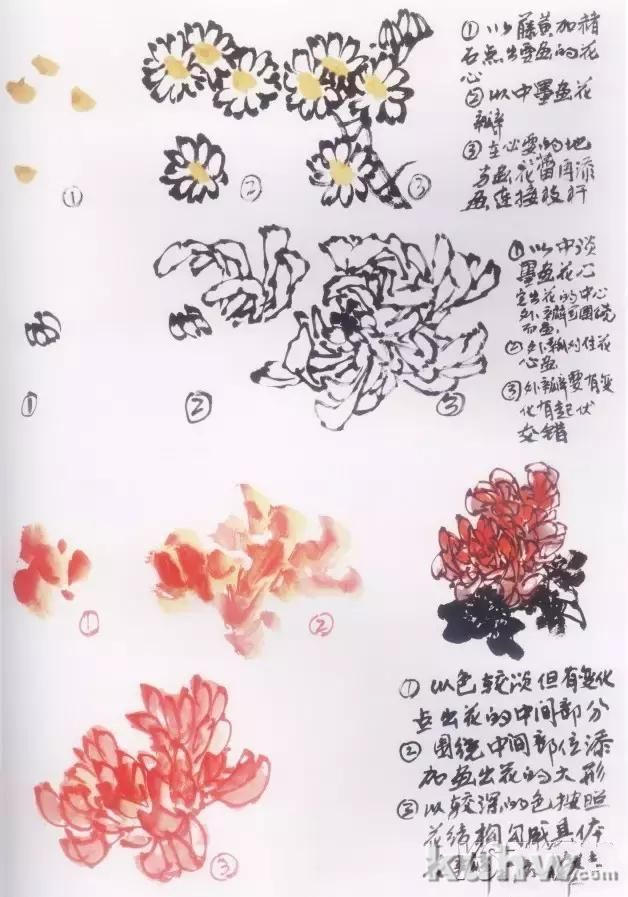 ① 以藤黄加赭
石点出要画的花
心
② 以中墨画花
瓣
③ 在必要的地
方画花蕾再添
画连接枝杆
①
②
③
① 以中淡
墨画花心
定出花的中心
外瓣可围绕
而画
② 外瓣对住花
心画
③ 外瓣要有变
化有起伏
交错
①
②
③
①
②
① 以色较淡但有变化
点出花的中间部分
② 围绕中间部位添
加画出花的大形
③ 以较深的色按照
花结构勾成具体
③